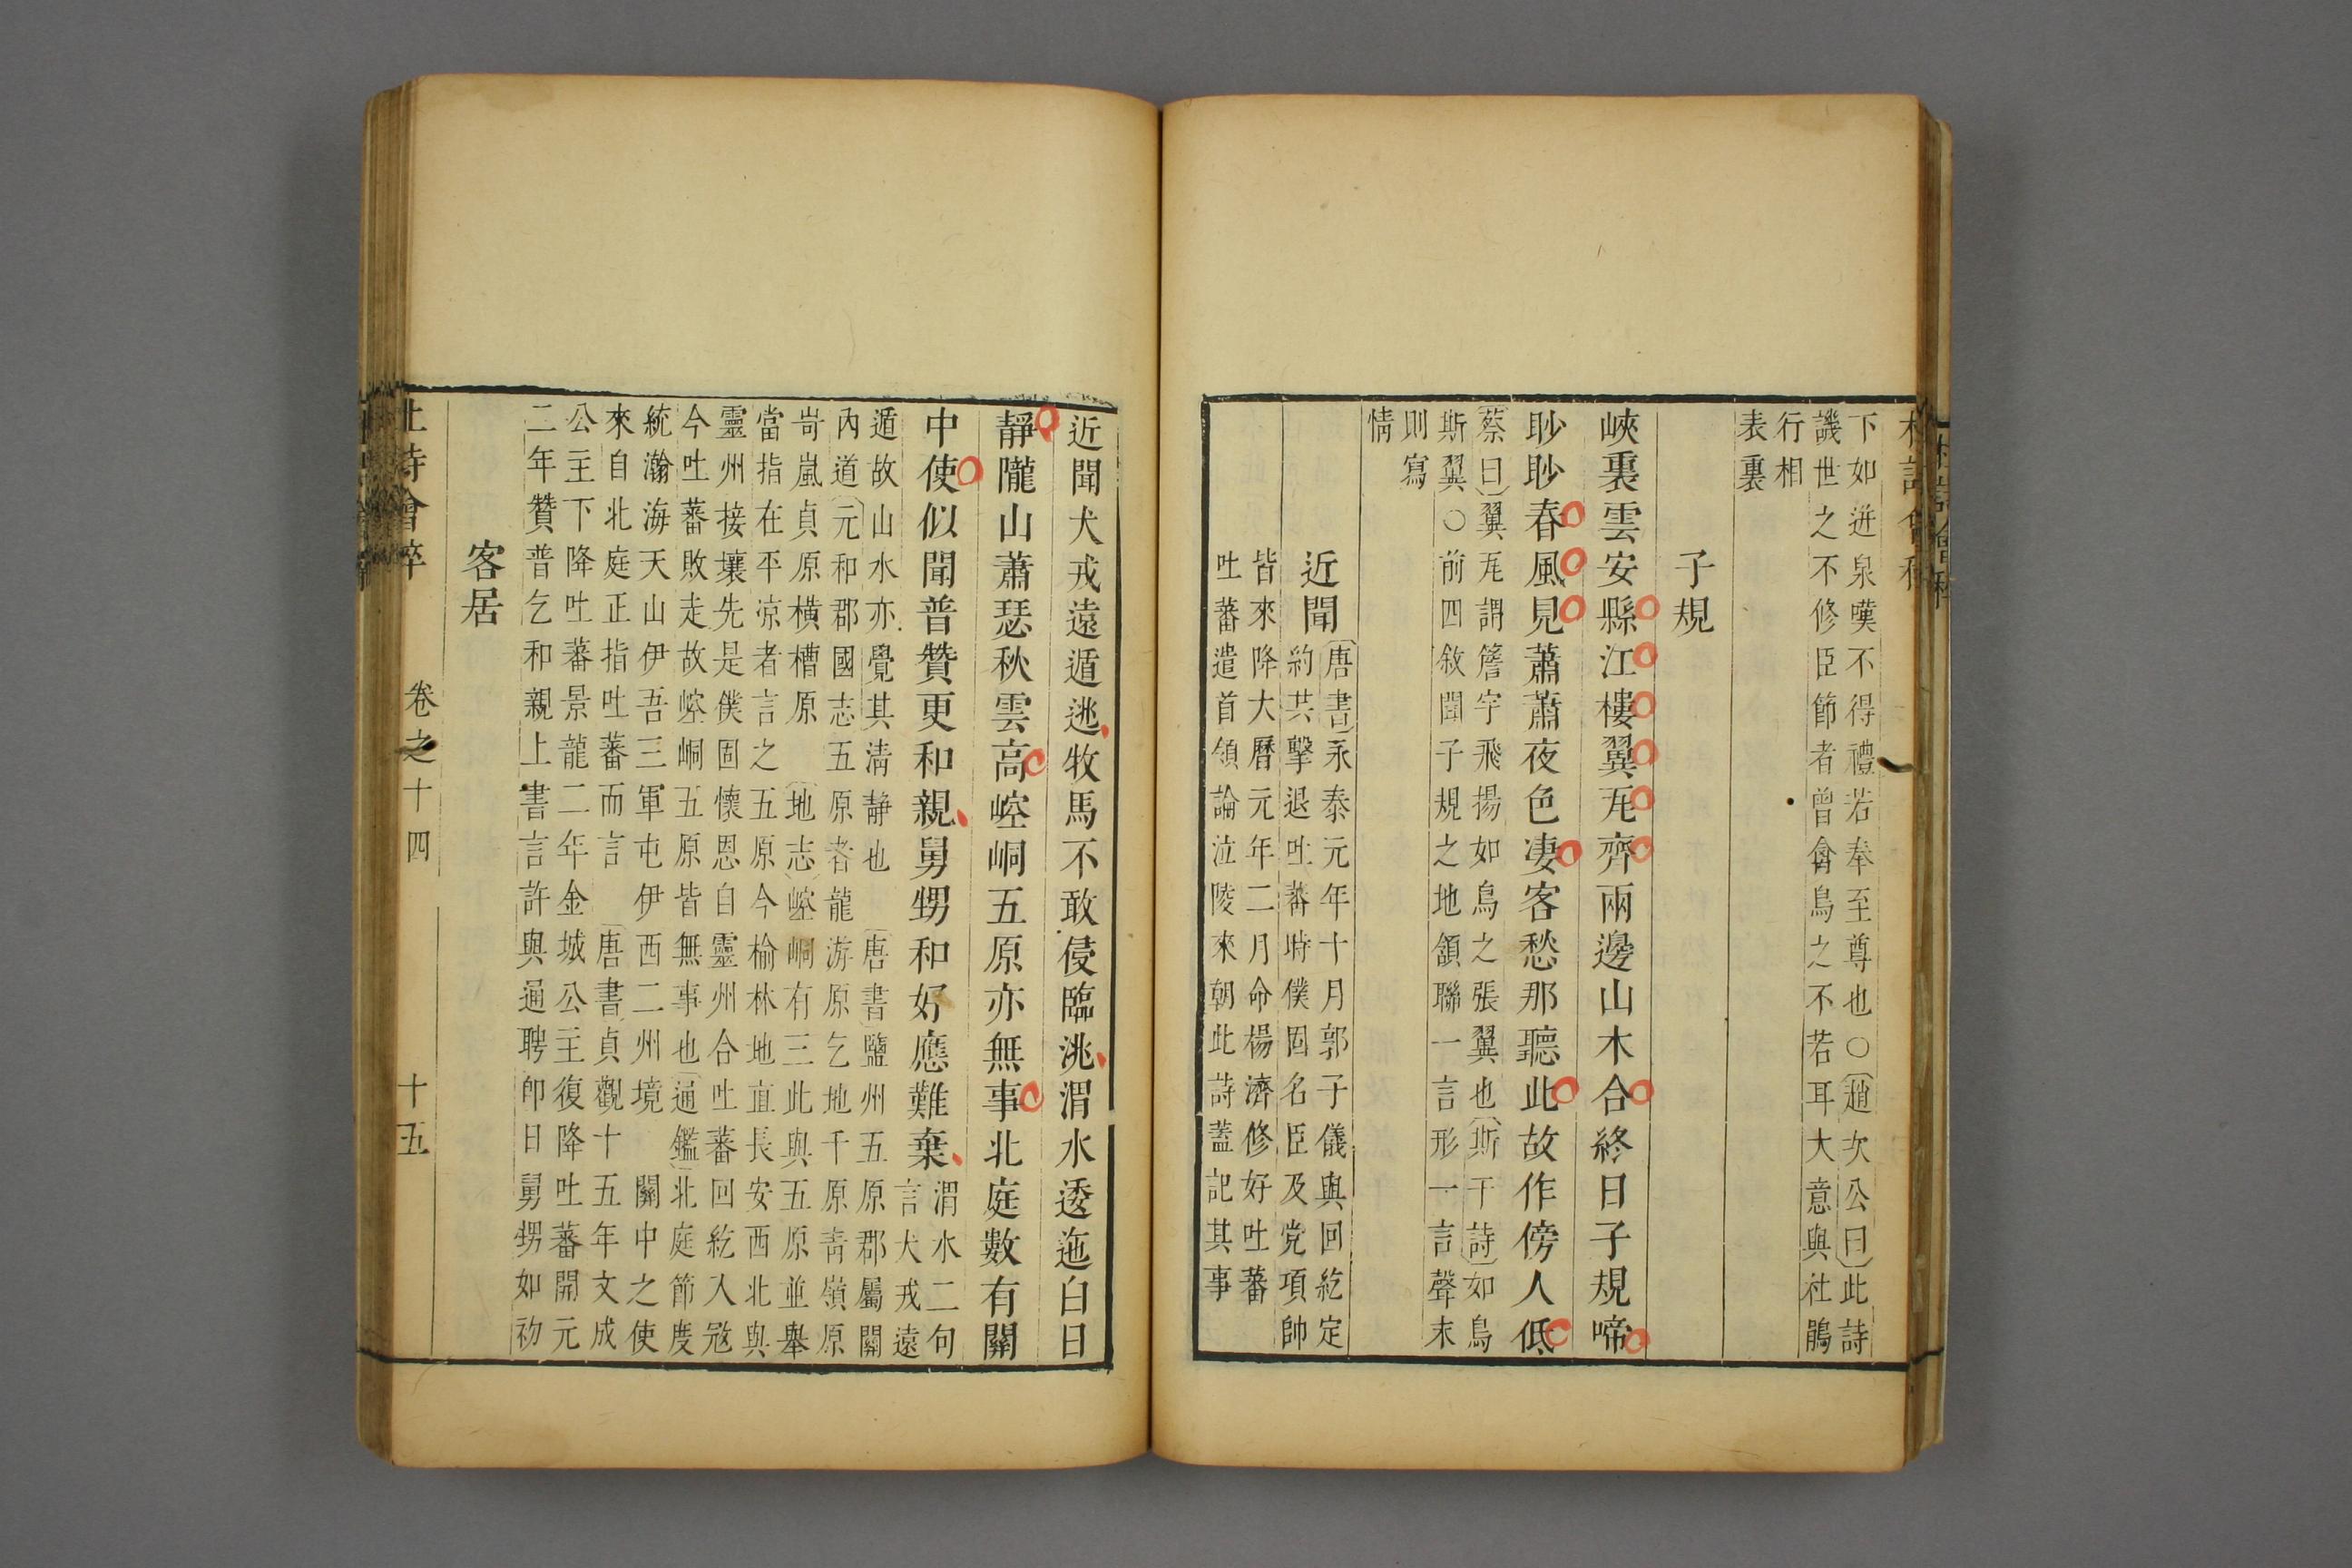 下如迸泉嘆不得禮若奉至尊也○趙次公曰此詩
譏世之不修臣節者曾禽鳥之不若耳大意與社鵑
行相
表裏
子規
峽裏雲安縣江樓翼瓦齊兩邊山木合終日子規啼
眇眇春風見蕭蕭夜色凄客愁那聽此故作傍人低
蔡曰翼瓦謂簷宇飛揚如鳥之張翼也斯干詩如鳥
斯翼○前四敘聞子規之地頷聯一言形一言聲末
則寫
情
近聞
唐書永泰元年十月郭子儀與回紇定
約共擊退吐蕃時僕固名臣及党項帥
皆來降大曆元年二月命楊濟修好吐蕃
吐蕃遣首領論泣陵來朝此詩蓋記其事
近聞犬戎遠遁逃牧馬不敢侵臨洮渭水逶迤白日
靜隴山蕭瑟秋雲高崆峒五原亦無事北庭數有關
中使似聞普贊更和親舅甥和好應難棄
渭水二句
言犬戎遠
遁故山水亦覺其清靜也 唐書鹽州五原郡屬關
內道元和郡國志五原者龍游原乞地千原靑嶺原
岢嵐貞原橫槽原 地志崆峒有三此與五原並舉
當指在平凉者言之五原今榆林地直長安西北與
靈州接壤先是僕固懷恩自靈州合吐蕃回紇入冦
今吐蕃敗走故崆峒五原皆無事也通鑑北庭節度
統瀚海天山伊吾三軍屯伊西二州境 關中之使
來自北庭正指吐蕃而言 唐書貞觀十五年文成
公主下降吐蕃景龍二年金城公主復降吐蕃開元
二年贊普乞和親上書言許與通聘卽日舅甥如初
客居
杜詩會稡
卷之十四
十五